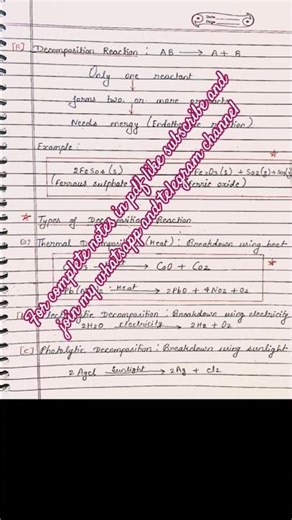 Date
Page
[B] Decomposition Reaction : AB → A + B
Only one reactant
↓
forms two or more
↓
Needs energy (Endoth
Example :
2FeSO4 (s) Fe2O3(s) + SO2(g) +
(Ferrous sulphate ferric oxide)
* Types of Decomposition Reaction *
(a) Thermal Decomposition (Heat) : Breakdown using heat
CaO + CO2
Heat → 2PbO + 4NO2 + O2
Decomposition : Breakdown using electricity
2H2O Electricity → 2H2 + O2
[C] Photolytic Decomposition : Breakdown using sunlight
2 Agcl Sunlight → 2Ag + cl2
For complete notes in pdf, like subscribe and
join my whatsapp and telegram channel